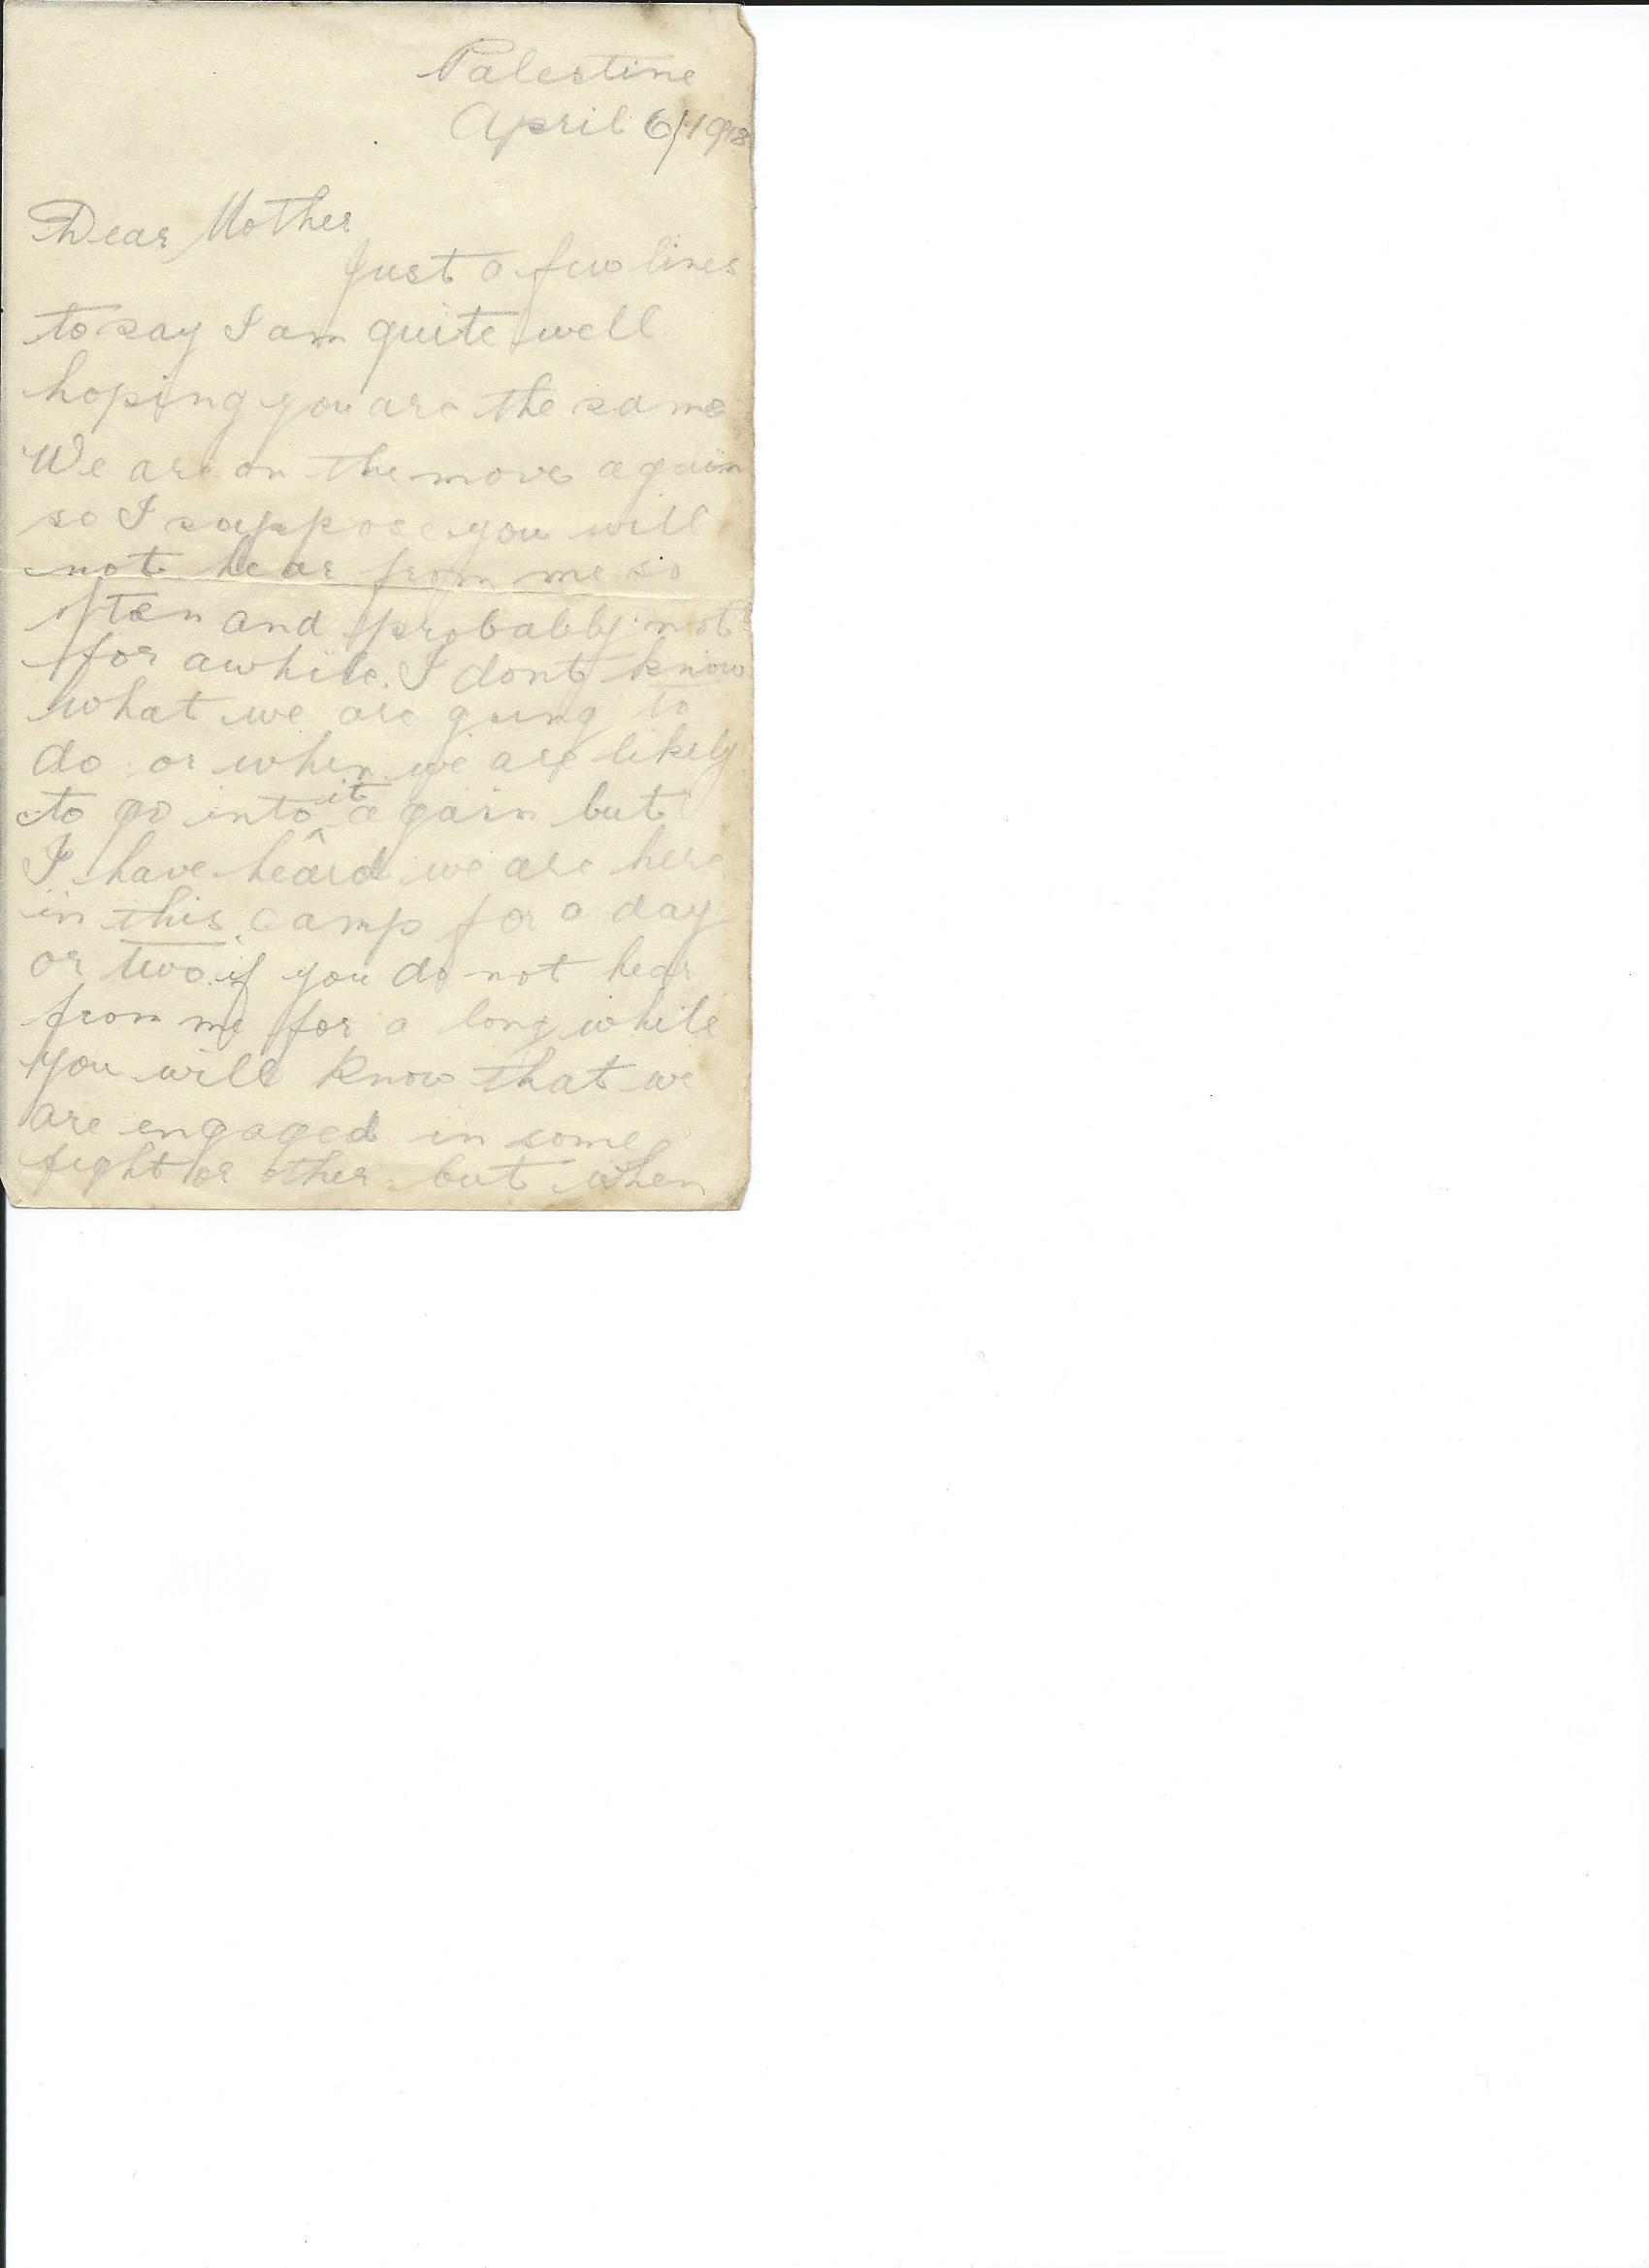 Palestine
April 6/1918
Dear Mother
Just a few lines
to say I am quite well
hoping you are the same
We are on the move again
so I suppose you will
not hear from me so
often and probably not
for awhile. I dont know
what we are going to
do or when we are likely
to go into it again but
I have heard we are here
in this camp for a day
or two. if you do not hear
from me for a long while
you will know that we
are engaged in some
fight or other but when